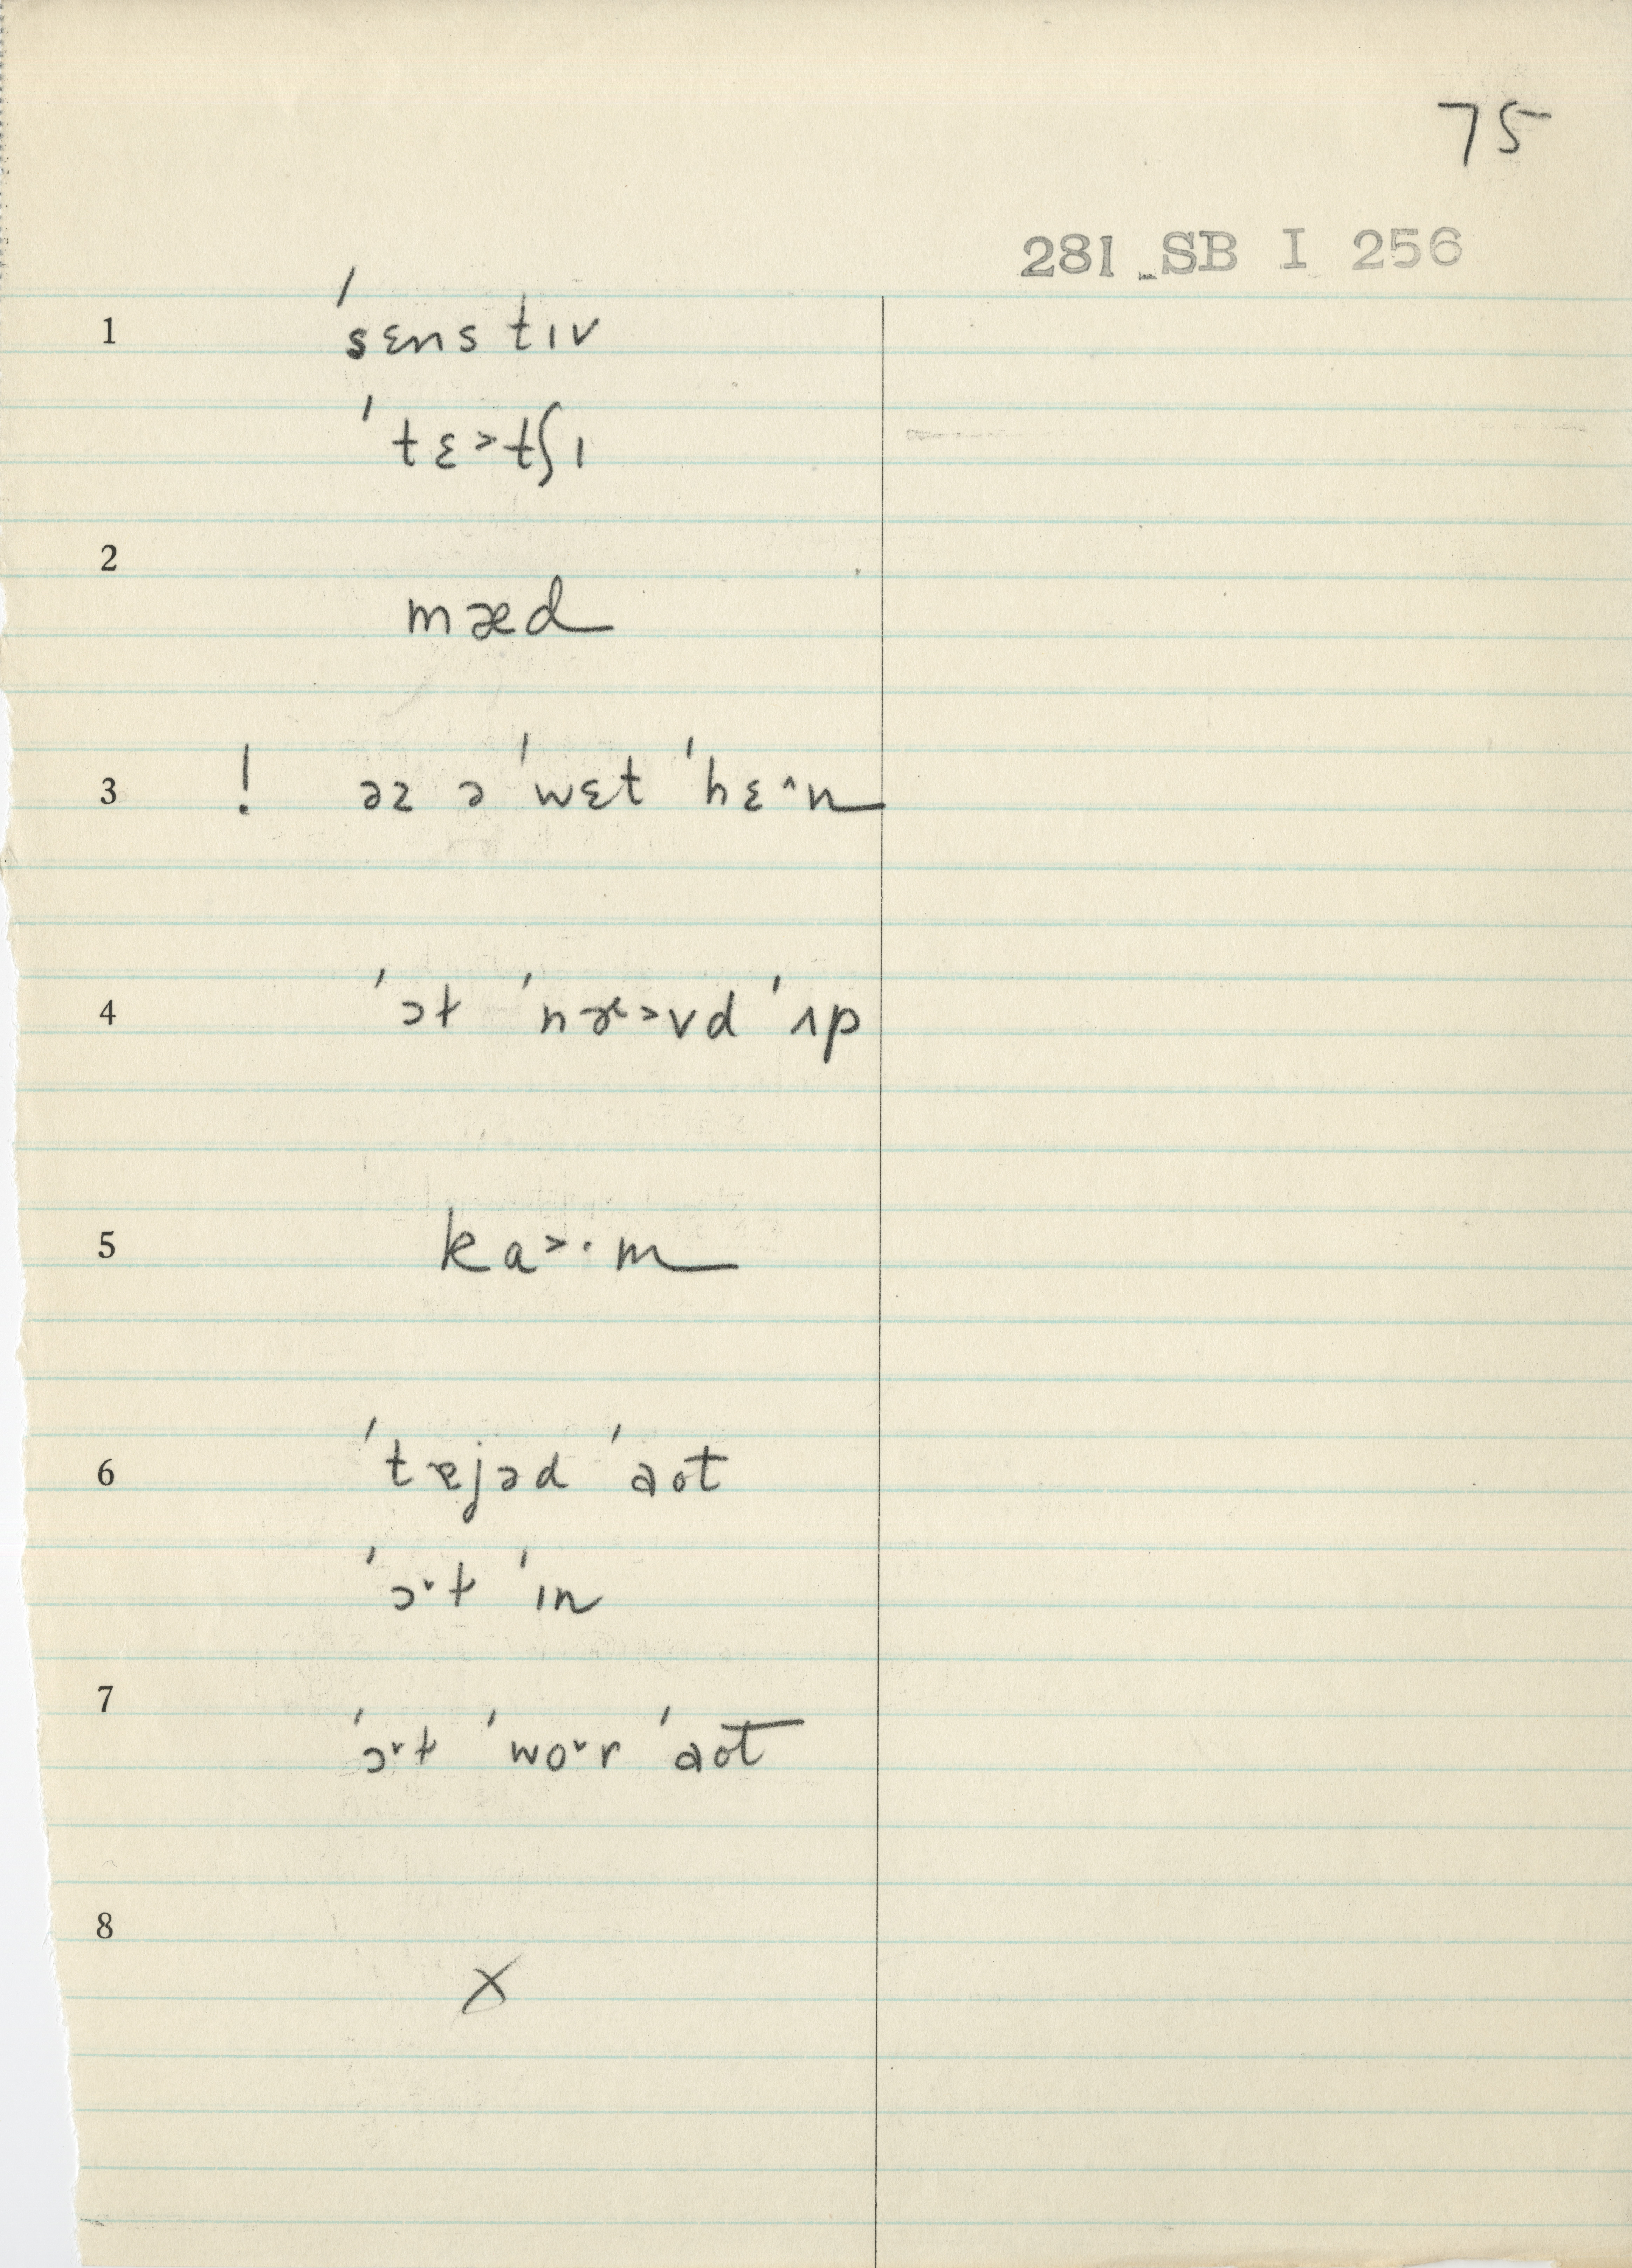 75
281 SB I 256
1 ˈsɛnstɪv
ˈtɛ˃tʃɪ
2
mæd
3 ! əz ə ˈwɛt ˈhɛ^n
4 ˈɔt ˈnæ˃vd ˈʌp
5 ka˃·m
6 ˈtɐjəd ˈaot
ˈɔ˅t ˈɪn
7
ˈɔ˅t ˈwo˅r ˈaot
8
X